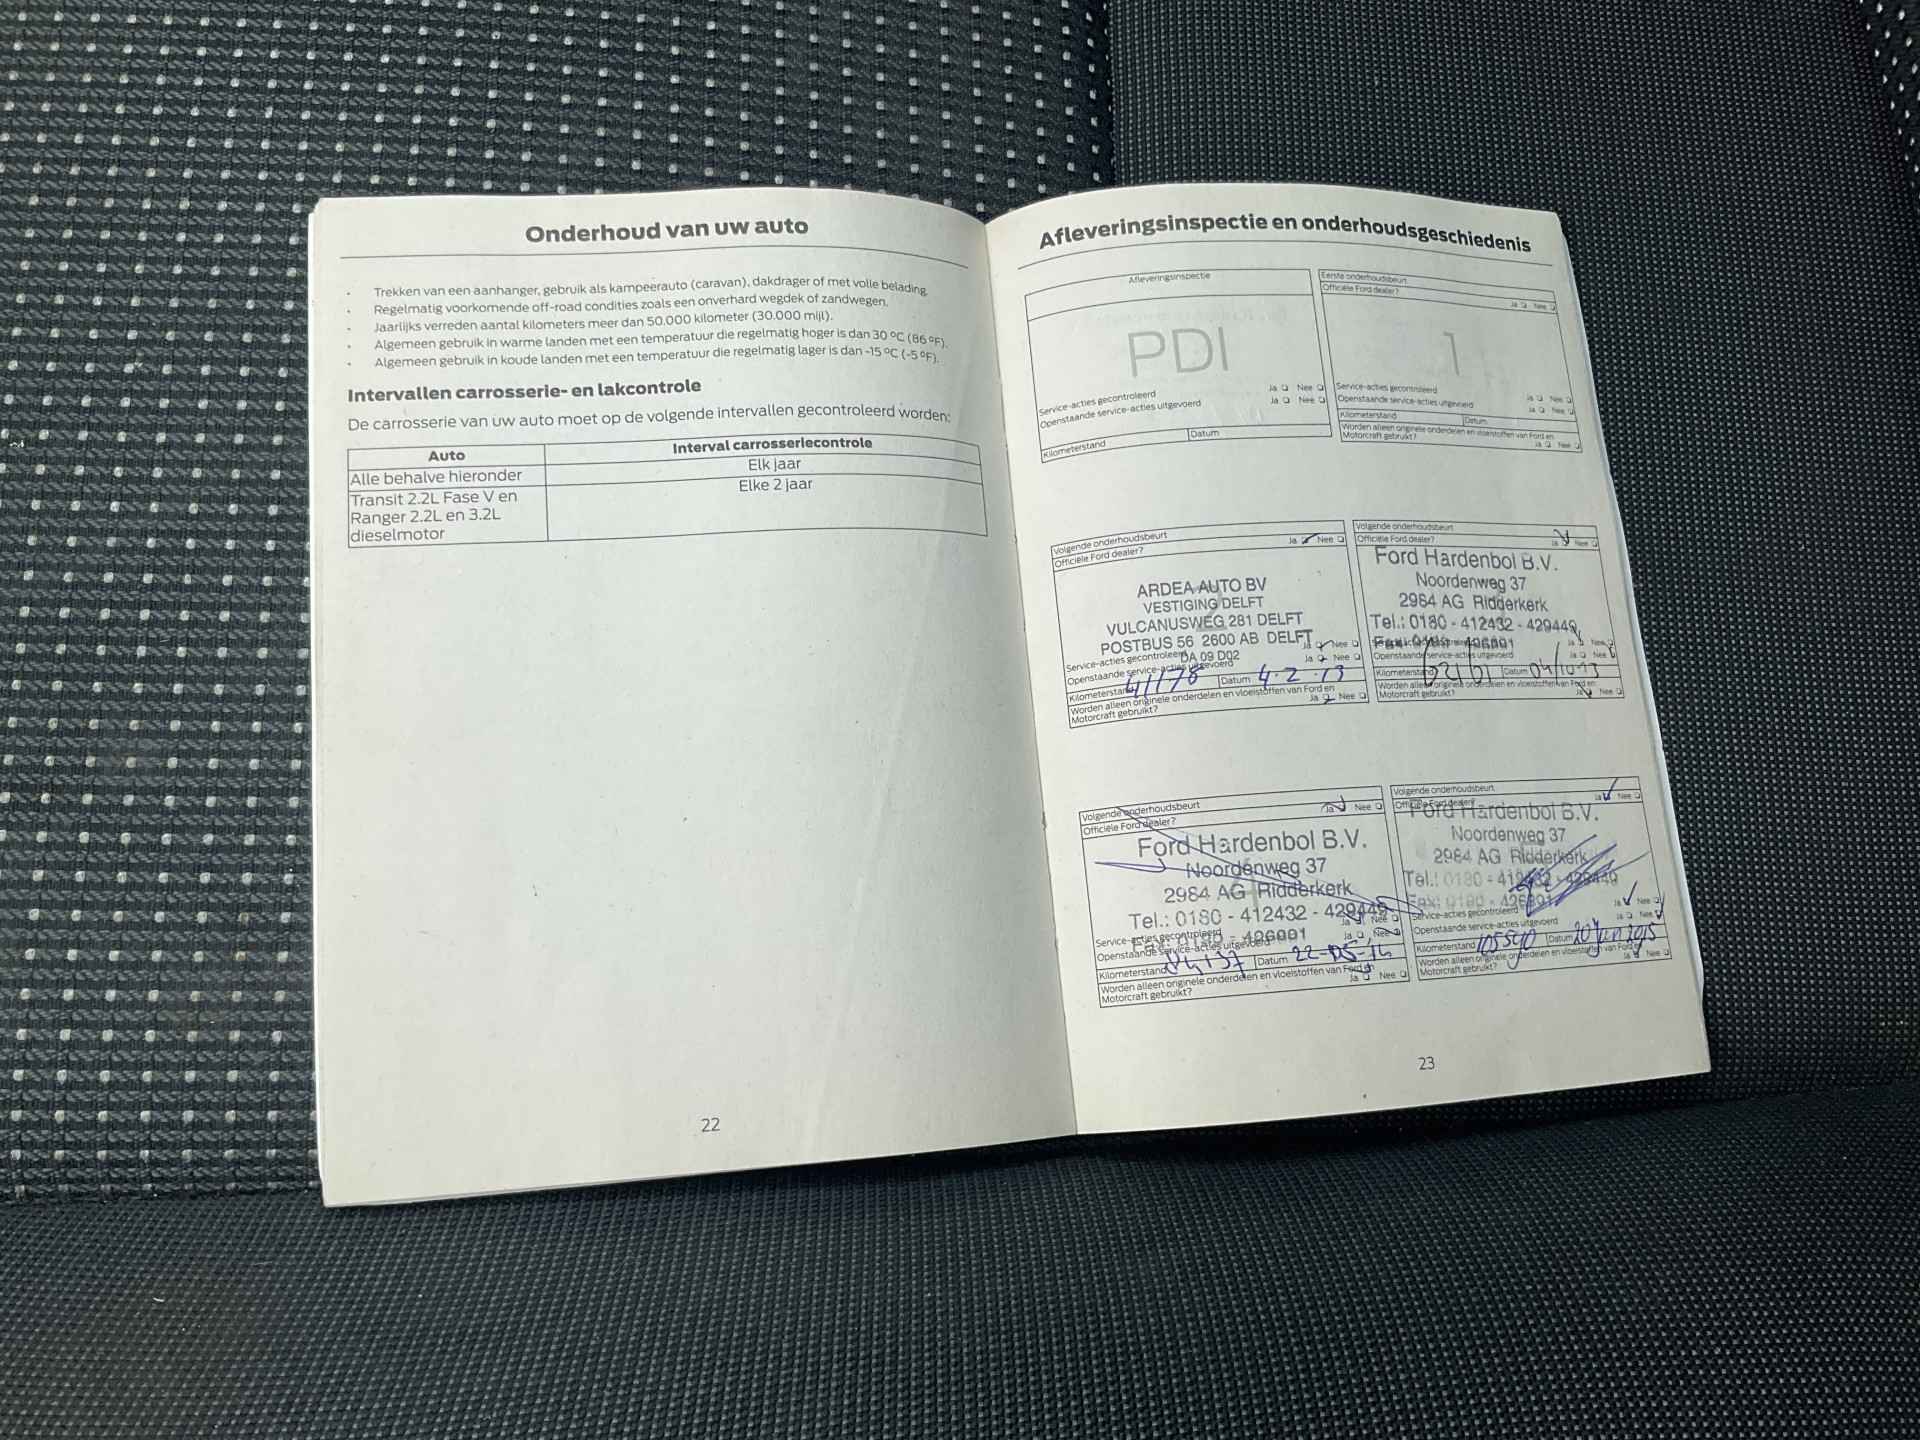 Onderhoud van uw auto
• Trekken van een aanhanger, gebruik als kampeerauto (caravan), dakdrager of met volle belading.
• Regelmatig voorkomende off-road condities zoals een onverhard wegdek of zandwegen.
• Jaarlijks verreden aantal kilometers meer dan 50.000 kilometer (30.000 mijl).
• Algemeen gebruik in warme landen met een temperatuur die regelmatig hoger is dan 30 ºC (86 ºF).
• Algemeen gebruik in koude landen met een temperatuur die regelmatig lager is dan -15 ºC (-5 ºF).
Intervallen carrosserie- en lakcontrole
De carrosserie van uw auto moet op de volgende intervallen gecontroleerd worden:
Auto Interval carrosseriecontrole
Alle behalve hieronder Elk jaar
Transit 2.2L Fase V en Elke 2 jaar
Ranger 2.2L en 3.2L
dieselmotor
22
Afleveringsinspectie en onderhoudsgeschiedenis
Afleveringsinspectie
PDI
Service-acties gecontroleerd Ja Nee
Openstaande service-acties uitgevoerd Ja Nee
Kilometerstand Datum
Eerste onderhoudsbeurt
Officiële Ford dealer? Ja Nee
1
Service-acties gecontroleerd Ja Nee
Openstaande service-acties uitgevoerd Ja Nee
Kilometerstand Datum
Worden alleen originele onderdelen en vloeistoffen van Ford en
Motorcraft gebruikt? Ja Nee
Volgende onderhoudsbeurt
Officiële Ford dealer? Ja Nee
ARDEA AUTO BV
VESTIGING DELFT
VULCANUSWEG 281 DELFT
POSTBUS 56 2600 AB DELFT
DA 09 D02
Service-acties gecontroleerd Ja Nee
Openstaande service-acties uitgevoerd Ja Nee
Kilometerstand 41178 Datum 4-2-13
Worden alleen originele onderdelen en vloeistoffen van Ford en
Motorcraft gebruikt? Ja Nee
Volgende onderhoudsbeurt
Officiële Ford dealer? Ja Nee
Ford Hardenbol B.V.
Noordenweg 37
2984 AG Ridderkerk
Tel.: 0180 - 412432 - 429449
Ja Nee
Openstaande service-acties uitgevoerd Ja Nee
Kilometerstand Datum 04/10 13
Worden alleen originele onderdelen en vloeistoffen van Ford en
Motorcraft gebruikt? Ja Nee
Volgende onderhoudsbeurt
Officiële Ford dealer? Ja Nee
Ford Hardenbol B.V.
Noordenweg 37
2984 AG Ridderkerk
Tel.: 0180 - 412432 - 429449
Service-acties gecontroleerd Ja Nee
Openstaande service-acties uitgevoerd Ja Nee
Kilometerstand Datum 22-05-14
Worden alleen originele onderdelen en vloeistoffen van Ford en
Motorcraft gebruikt? Ja Nee
Volgende onderhoudsbeurt
Officiële Ford dealer? Ja Nee
Ford Hardenbol B.V.
Noordenweg 37
2984 AG Ridderkerk
Tel.: 0180 - 412432 - 429449
Service-acties gecontroleerd Ja Nee
Openstaande service-acties uitgevoerd Ja Nee
Kilometerstand 105590 Datum 20 juni 2015
Worden alleen originele onderdelen en vloeistoffen van Ford en
Motorcraft gebruikt? Ja Nee
23